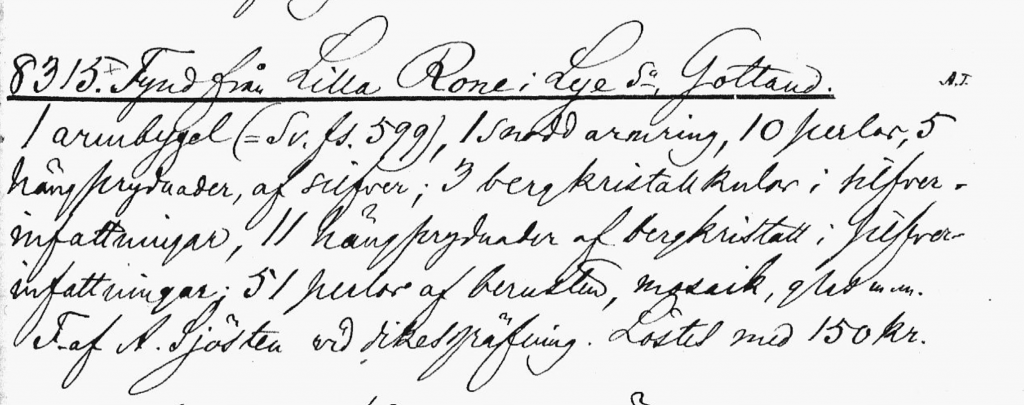 8315.+ Fynd från Lilla Rone i Lye Sn, Gotland. A.I.
1 armbygel (= Sv. fs. 599), 1 snodd armring, 10 perlor, 5
hängprydnader, af silfver; 3 bergkristallkulor i silfver-
infattningar, 11 hängprydnader af bergkristall i silfver-
infattningar; 51 perlor af bernsten, mosaik, glas m.m.
F. af A. Sjösten vid dikesgräfning. Löstes med 150 kr.